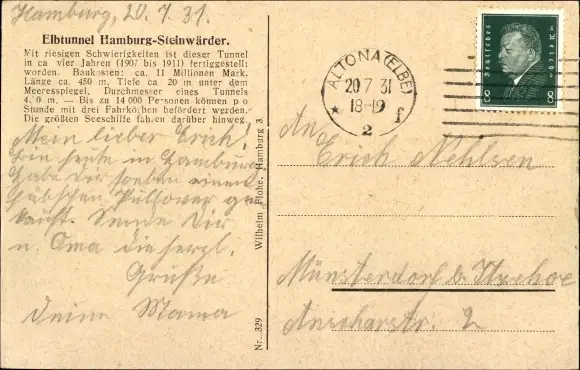 Hamburg, 20.7.31.
Elbtunnel Hamburg-Steinwärder.
Mit riesigen Schwierigkeiten ist dieser Tunnel
in ca vier Jahren (1907 bis 1911) fertiggestellt
worden. Baukosten: ca. 11 Millionen Mark.
Länge ca. 450 m, Tiefe ca 20 m unter dem
Meeresspiegel, Durchmesser eines Tunnels
m. — Bis zu 14 000 Personen können p o
Stunde mit drei Fahrkörben befördert werden.
Die größten Seeschiffe fahren darüber hinweg.
Mein lieber Erich!
Bin heute in Hamburg
habe Dir soeben einen
hübschen Pullover ge
kauft. Sende Dir
u. Oma die herzl.
Grüße
Deine Mama
Wilhelm Flohe, Hamburg 3.
Nr. 329
ALTONA (ELBE)
20 7 31
18-19
* 2 f
Deutsches Reich
8 8
An
Erich Nehlsen
Münsterdorf b. Itzehoe
Anscharstr. 2